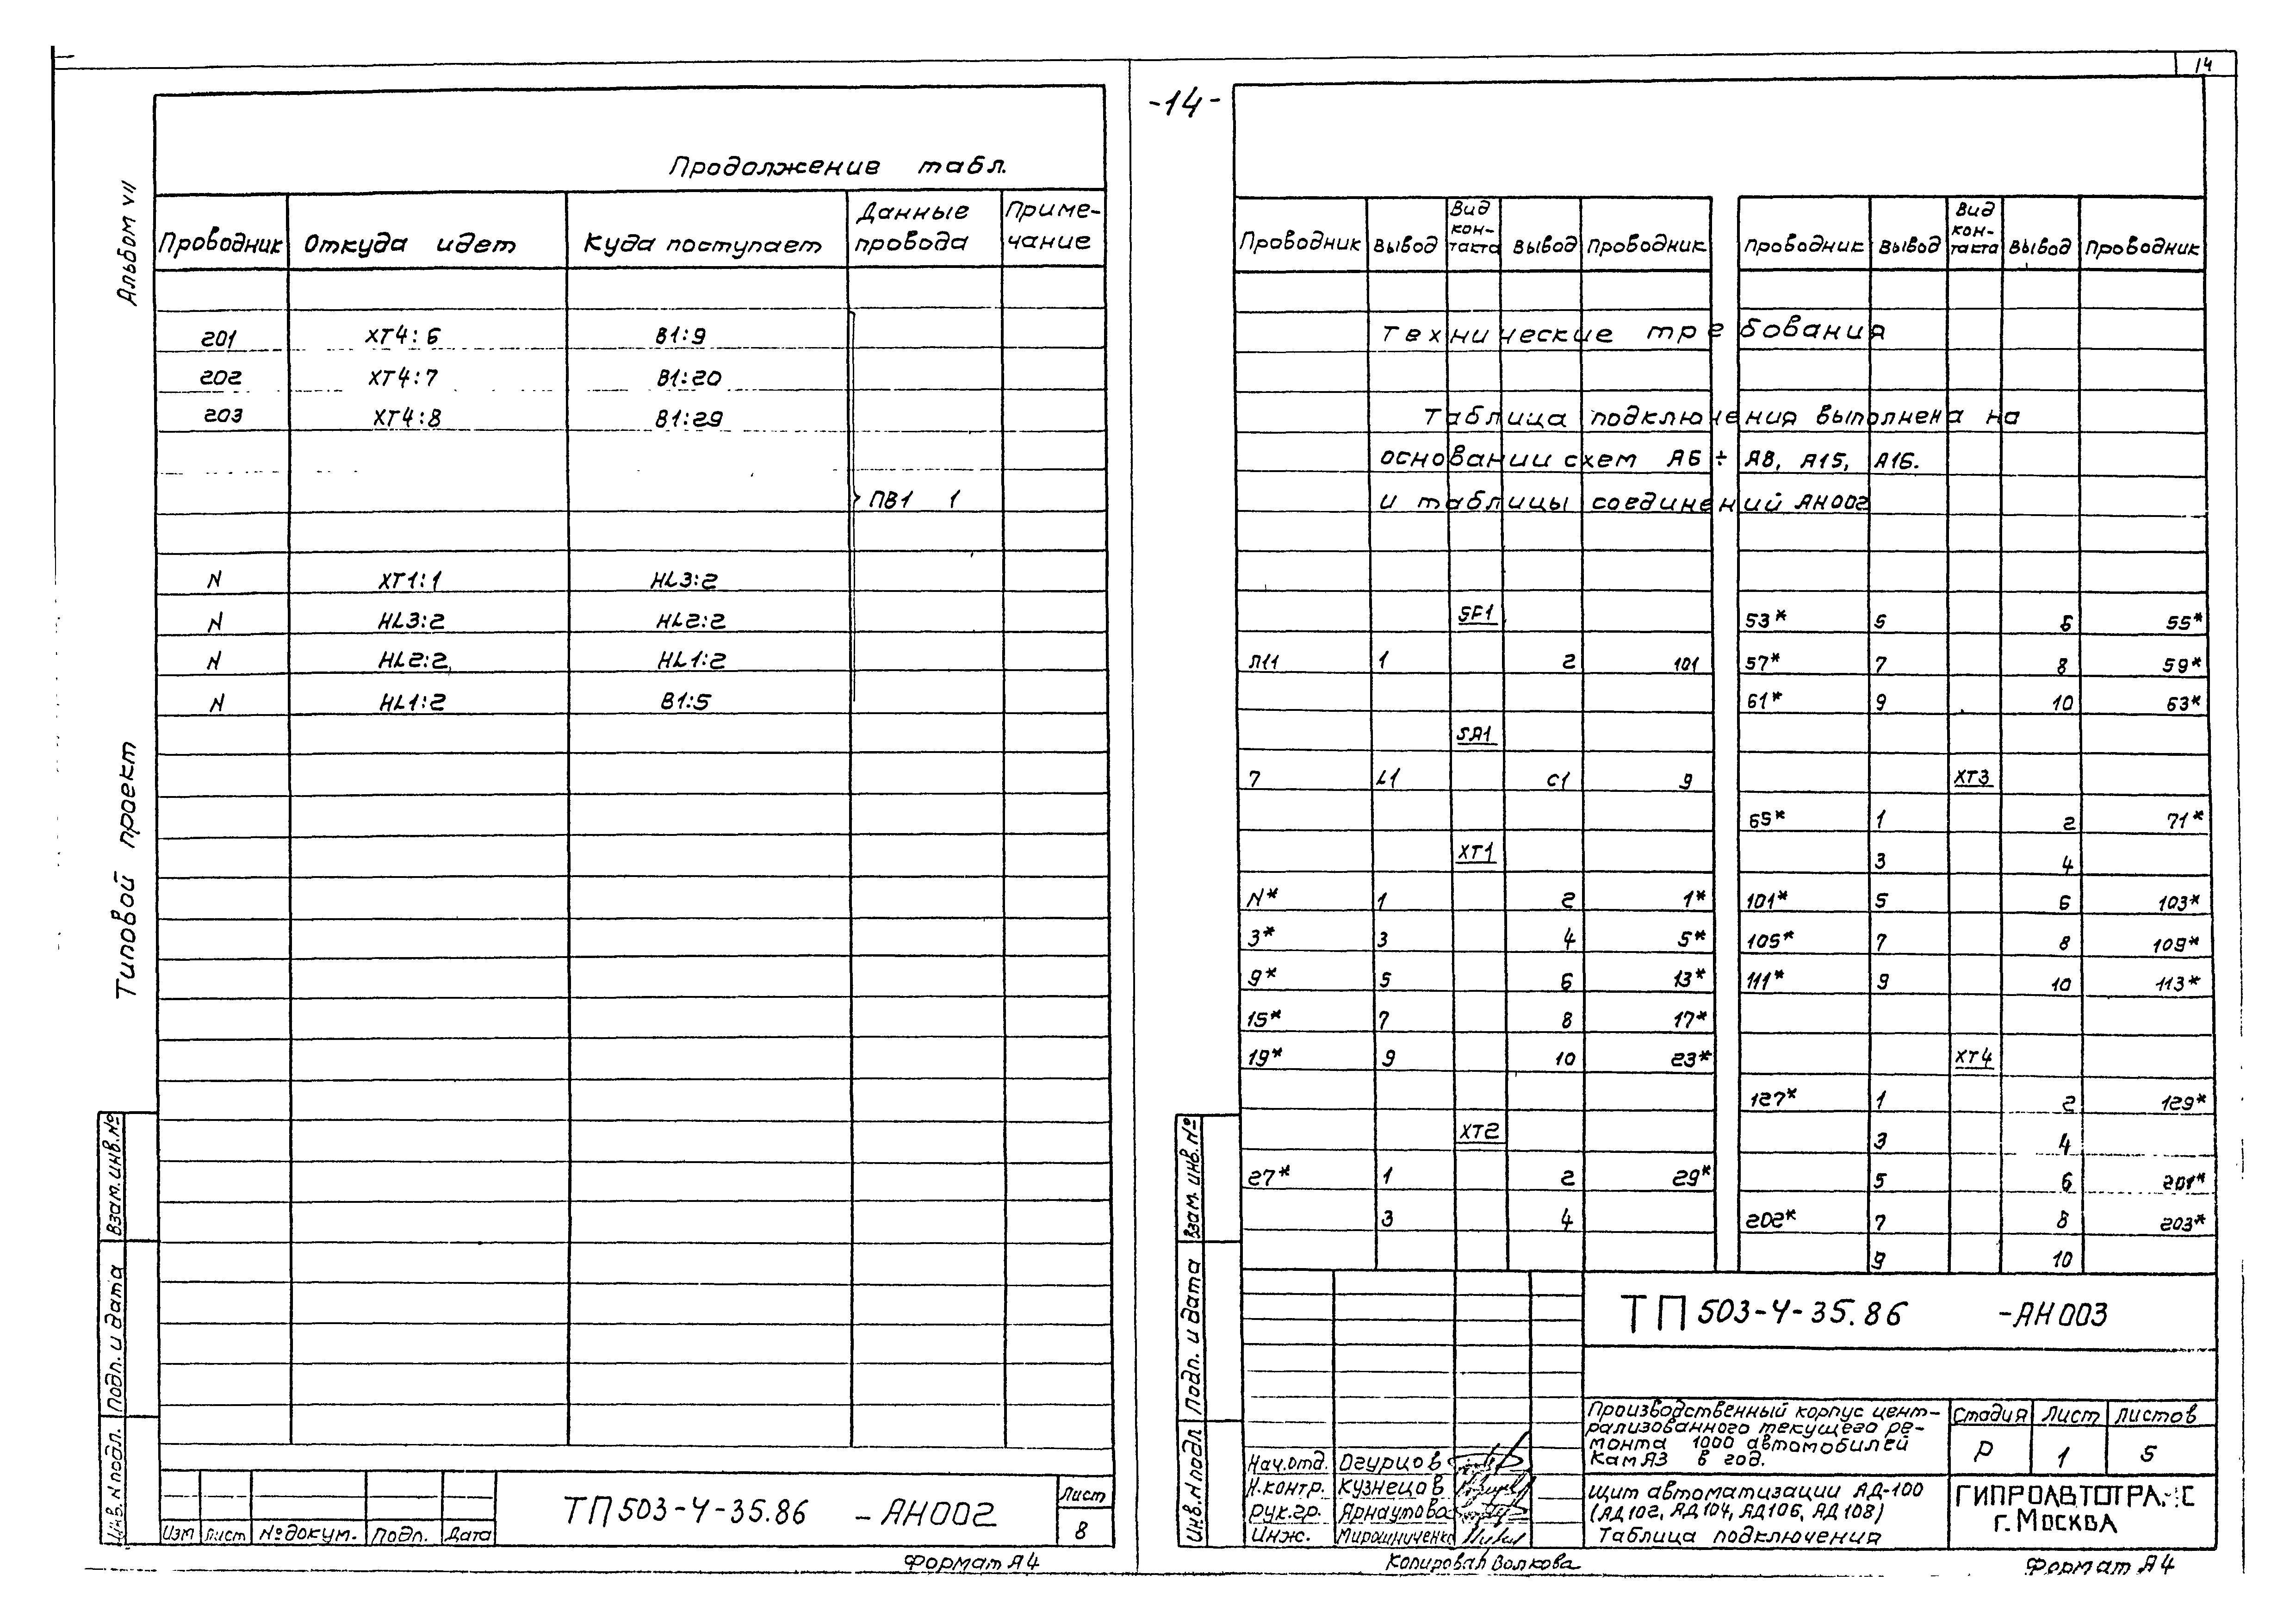 14
-14-
Альбом VII
Типовой проект
Продолжение табл.
Проводник Откуда идет Куда поступает Данные провода Приме-чание
201 XT4:6 B1:9
202 XT4:7 B1:20
203 XT4:8 B1:29
ПВ1 1
N XT1:1 HL3:2
N HL3:2 HL2:2
N HL2:2 HL1:2
N HL1:2 B1:5
Взам. инв. №
Подп. и дата
Инв. N подл.
Изм Лист № докум. Подп. Дата
ТП 503-4-35.86 -АН002
Лист
8
Формат А4
Проводник Вывод Вид кон-такта Вывод Проводник
Проводник Вывод Вид кон-такта Вывод Проводник
Технические требования
Таблица подключения выполнена на
основании схем А6÷А8, А15, А16.
и таблицы соединений АН002
SF1
Л11 1 2 101
SA1
7 L1 C1 9
XT1
N* 1 2 1*
3* 3 4 5*
9* 5 6 13*
15* 7 8 17*
19* 9 10 23*
XT2
27* 1 2 29*
3 4
53* 5 6 55*
57* 7 8 59*
61* 9 10 63*
XT3
65* 1 2 71*
3 4
101* 5 6 103*
105* 7 8 109*
111* 9 10 113*
XT4
127* 1 2 129*
3 4
5 6 201*
202* 7 8 203*
9 10
Взам. инв. №
Подп. и дата
Инв. N подл
ТП 503-4-35.86 -АН003
Производственный корпус цент-
рализованного текущего ре-
монта 1000 автомобилей
КамАЗ в год.
Стадия Лист Листов
Р 1 5
Нач.отд. Огурцов
Н.контр. Кузнецов
рук.гр. Арнаутова
Инж. Мирошниченко
Щит автоматизации АД-100
(АД102, АД104, АД106, АД108)
Таблица подключения
ГИПРОАВТОТРАНС
г. МОСКВА
Копировал Волкова
Формат А4